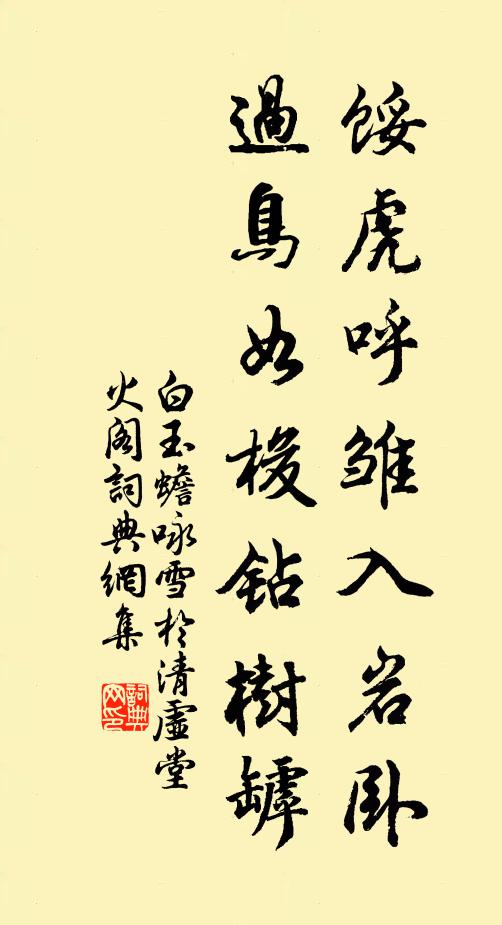 馁虎呼雏入岩卧
過鳥如梭钻樹罅
白玉蟾咏雪於清虚堂
火阁詞典網集
詞典网印